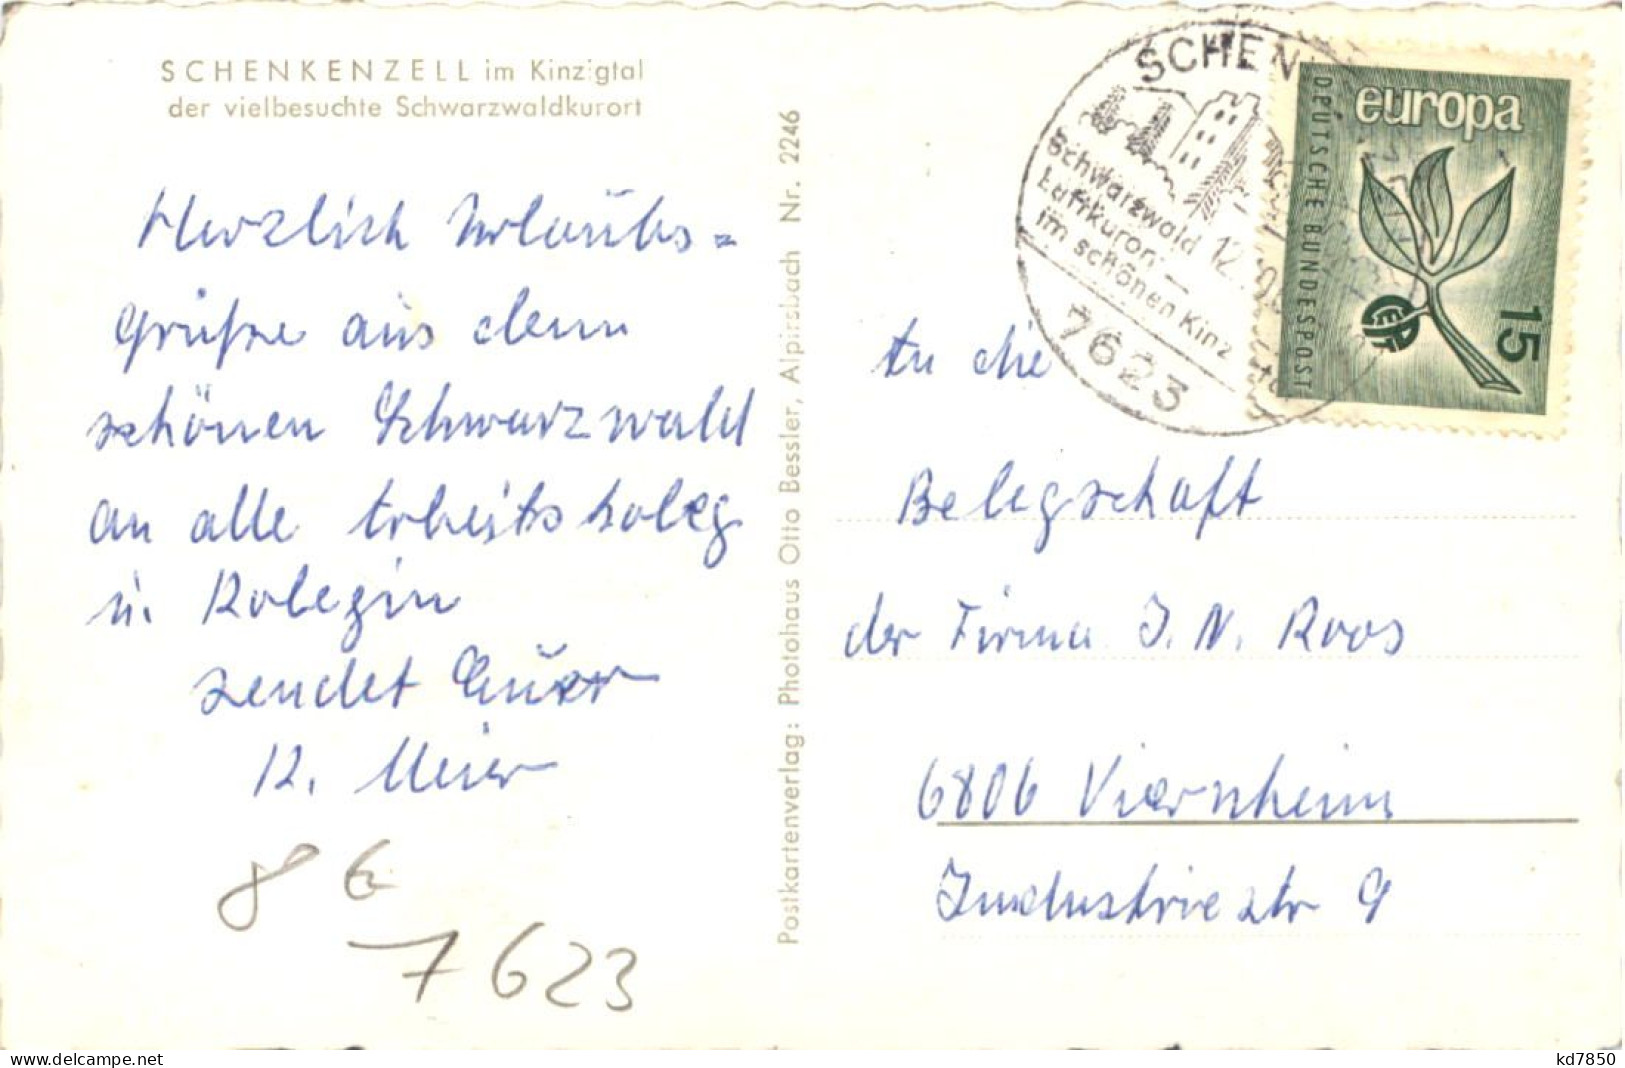 SCHENKENZELL im Kinzigtal
der vielbesuchte Schwarzwaldkurort
Herzlich Urlaubs=
Grüße aus dem
schönen Schwarzwald
an alle Arbeitskoleg
u. Kolegin
sendet Euer
K. Meier
8 €
7623
Postkartenverlag: Photohaus Otto Bessler, Alpirsbach Nr. 2246
SCHEN
Schwarzwald
Luftkurort
im schönen Kinz
12.
7623
europa
DEUTSCHE BUNDESPOST
CEPT
15
An die
Belegschaft
der Firma J. N. Roos
6806 Viernheim
Industriestr 9
www.delcampe.net
kd7850